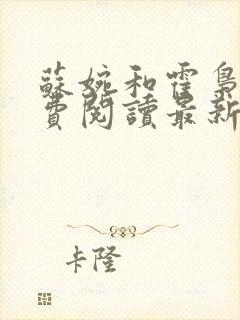 蘇婉和霍梟
費閱讀最新
卡隆